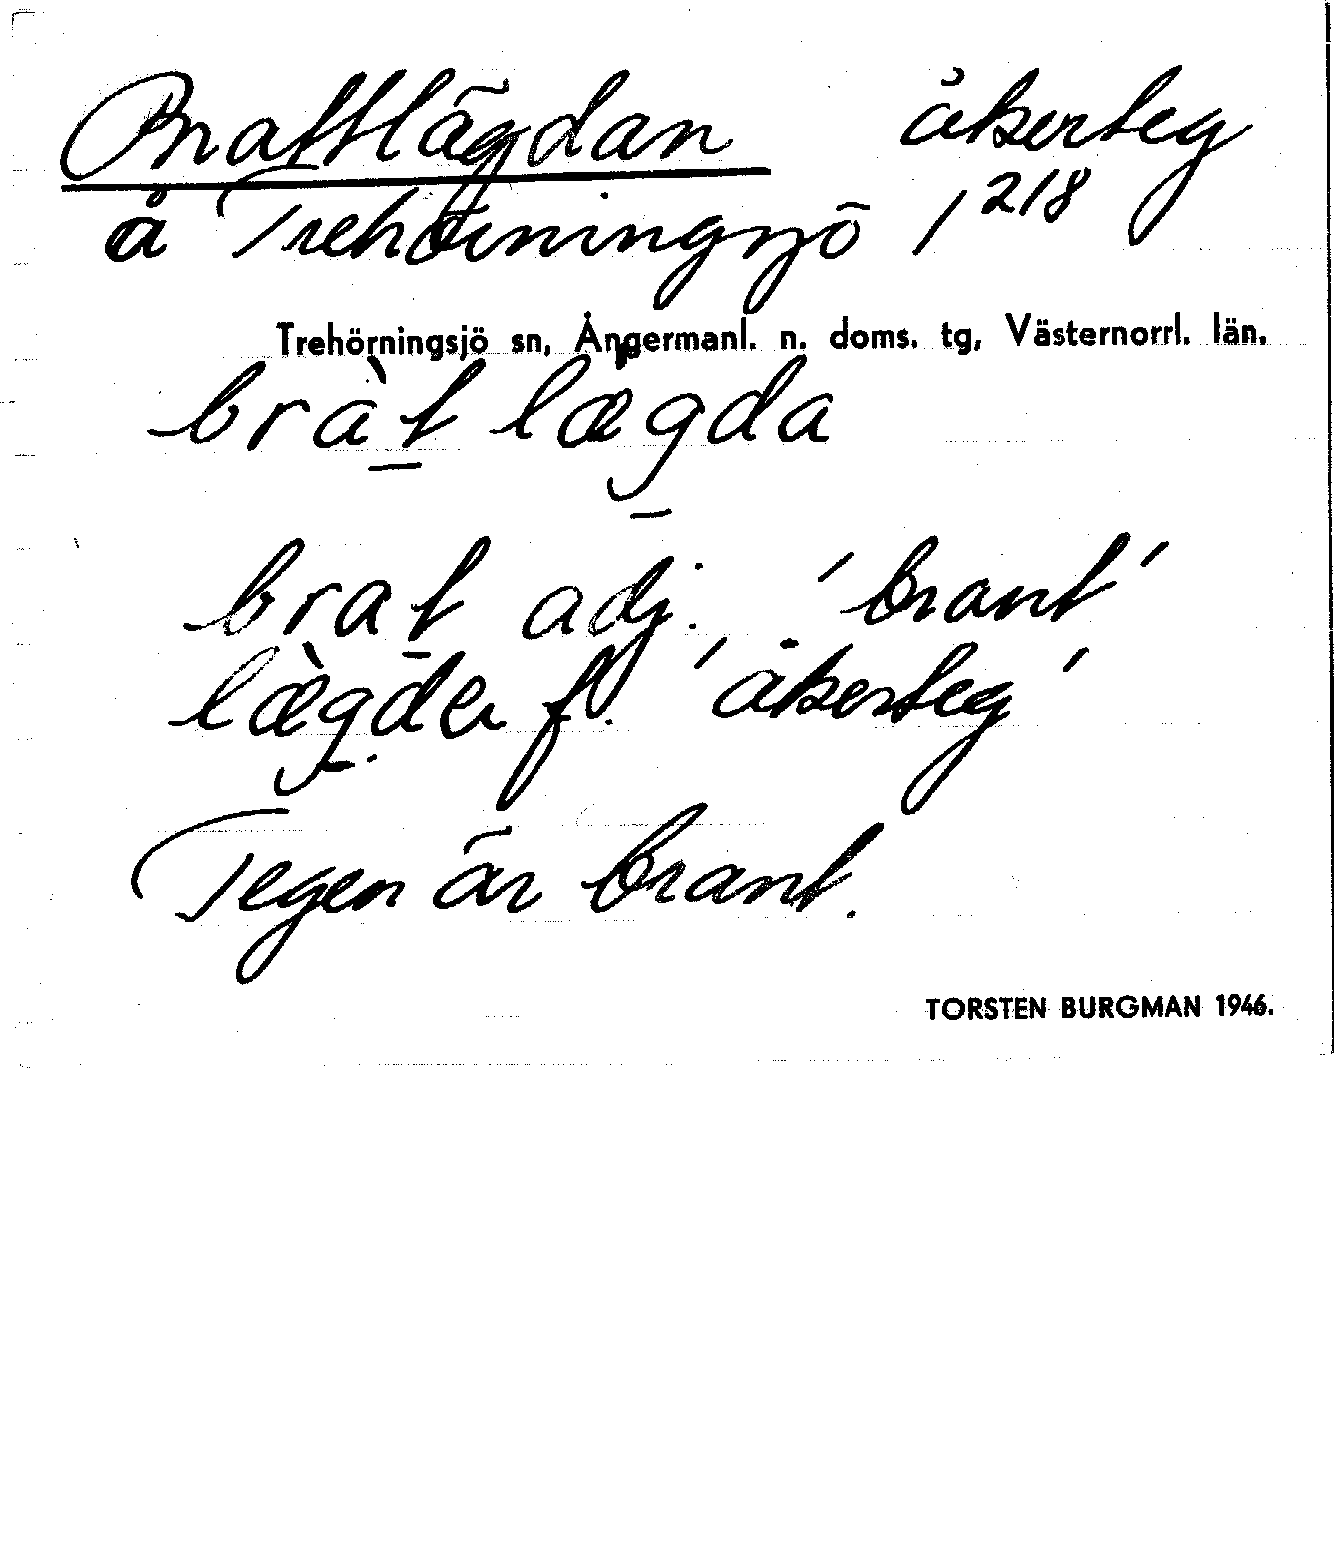 Brattlägdan åkerteg
å Trehörningsjö 1 218
Trehörningsjö sn, Ångermanl. n. doms. tg, Västernorrl. län.
bràt lægda
brat adj. 'brant'
lægdeɹ f. 'åkerteg'
Tegen är brant.
TORSTEN BURGMAN 1946.